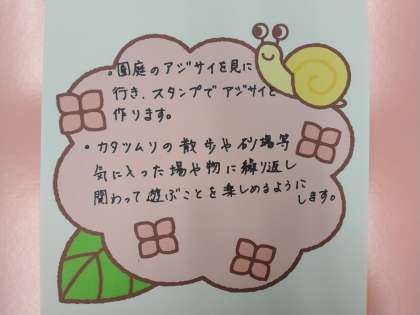 ・園庭のアジサイを見に
行き、スタンプでアジサイを
作ります。
・カタツムリの散歩や砂場等
気に入った場や物に繰り返し
関わって遊ぶことを楽しめるように
します。